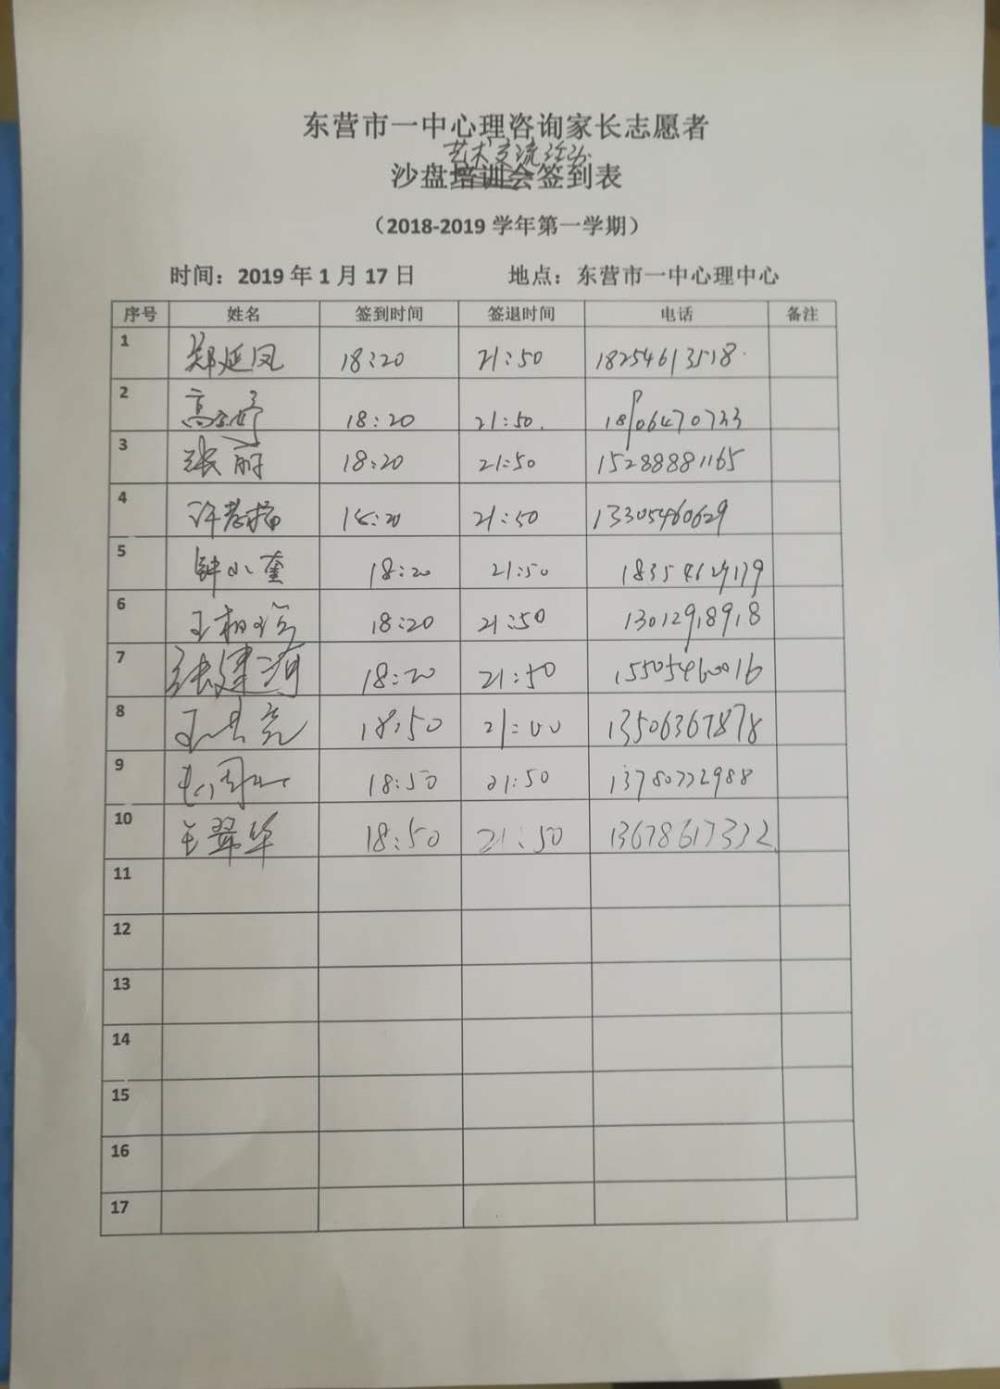 东营市一中心理咨询家长志愿者
艺术交流活动
沙盘培训会签到表
（2018-2019 学年第一学期）
时间：2019 年 1 月 17 日 地点：东营市一中心理中心
序号 姓名 签到时间 签退时间 电话 备注
1 郑延凤 18:20 21:50 18254613518
2 18:20 21:50
3 张丽 18:20 21:50 15288881165
4 21:50 13305460629
5 钟小奎 18:20 21:50
6 18:20 21:50 13012918918
7 张建河 18:20 21:50 15505460016
8 18:50 21:00 13506367878
9 18:50 21:50 13780722988
10 王翠华 18:50 21:50 13678617332
11
12
13
14
15
16
17